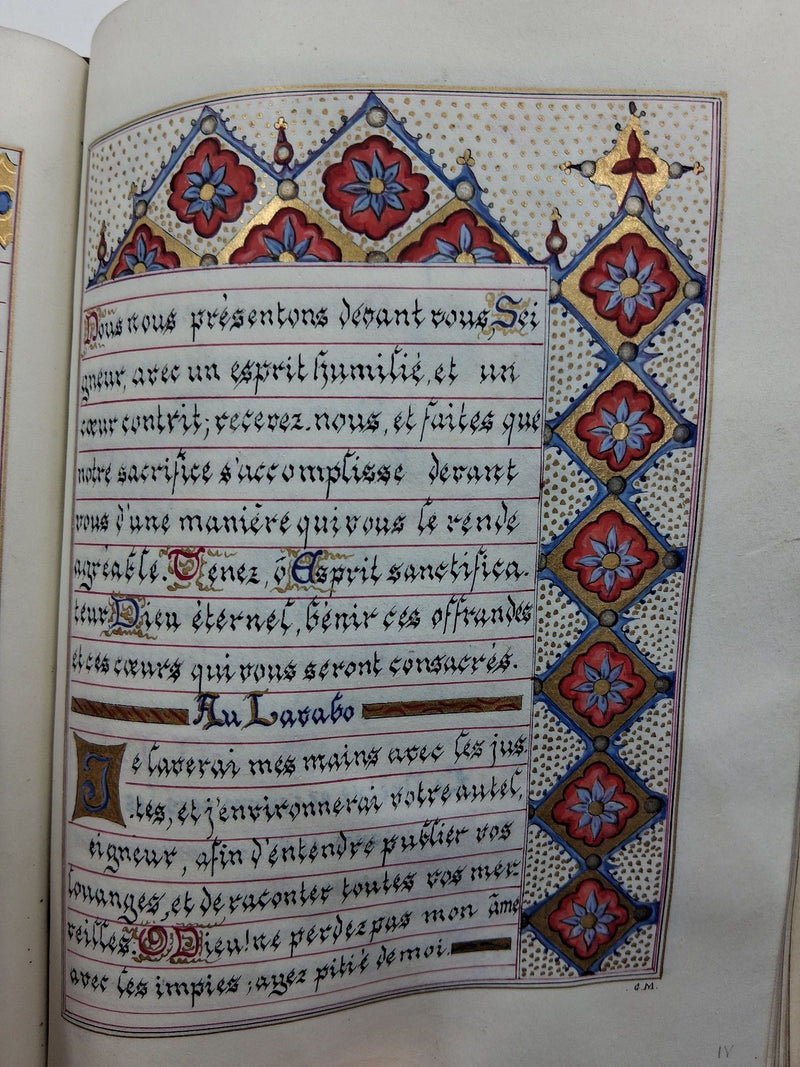 Nous nous présentons devant vous, Sei
gneur, avec un esprit humilié, et un
cœur contrit; recevez-nous, et faites que
notre sacrifice s'accomplisse devant
vous d'une manière qui vous le rende
agréable. Venez, ô Esprit sanctifica-
teur Dieu éternel, bénir ces offrandes
et ces cœurs qui vous seront consacrés.
Au Lavabo
Je laverai mes mains avec les jus-
tes, et j'environnerai votre autel,
eigneur, afin d'entendre publier vos
louanges, et de raconter toutes vos mer-
veilles. O Dieu! ne perdez pas mon âme
avec les impies; ayez pitié de moi.
C.M.
IV